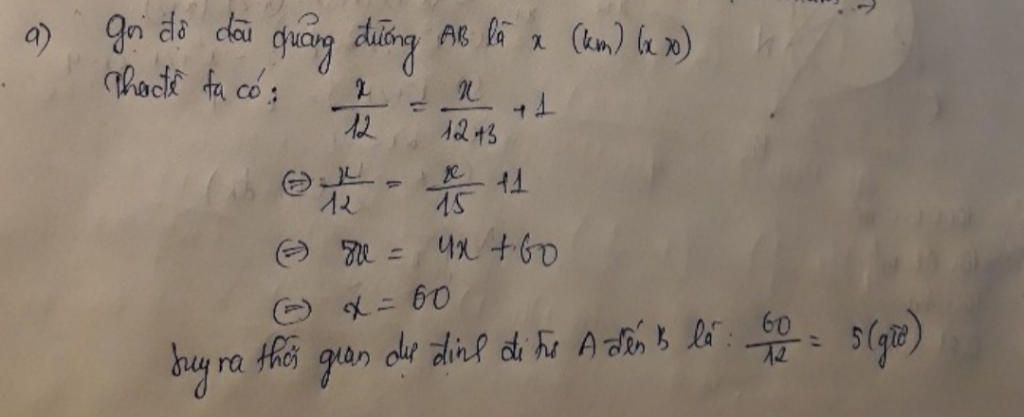 a) Gọi độ dài quãng đường AB là x (km) (x>0)
Theo đề ta có: x/12 = x/(12+3) + 1
⇔ x/12 = x/15 + 1
⇔ 5x = 4x + 60
⇔ x = 60
Suy ra thời gian dự định đi từ A đến B là: 60/12 = 5 (giờ)